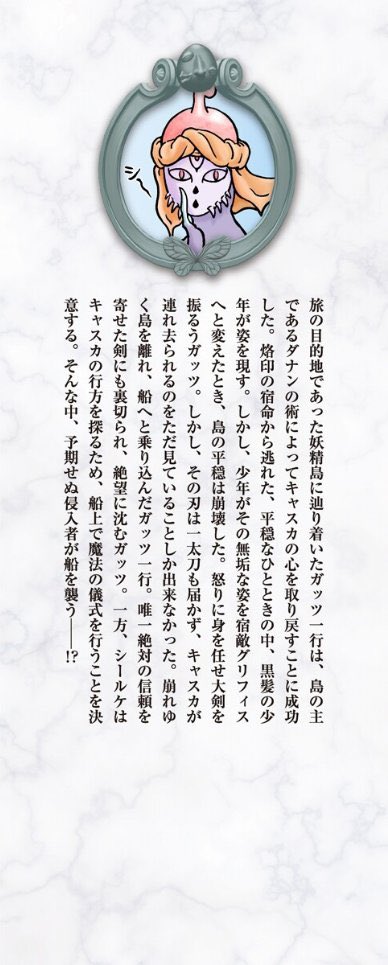 シー
旅の目的地であった妖精島に辿り着いたガッツ一行は、島の主
であるダナンの術によってキャスカの心を取り戻すことに成功
した。烙印の宿命から逃れた、平穏なひとときの中、黒髪の少
年が姿を現す。しかし、少年がその無垢な姿を宿敵グリフィス
へと変えたとき、島の平穏は崩壊した。怒りに身を任せ大剣を
振るうガッツ。しかし、その刃は一太刀も届かず、キャスカが
連れ去られるのをただ見ていることしか出来なかった。崩れゆ
く島を離れ、船へと乗り込んだガッツ一行。唯一絶対の信頼を
寄せた剣にも裏切られ、絶望に沈むガッツ。一方、シールケは
キャスカの行方を探るため、船上で魔法の儀式を行うことを決
意する。そんな中、予期せぬ侵入者が船を襲う――!?